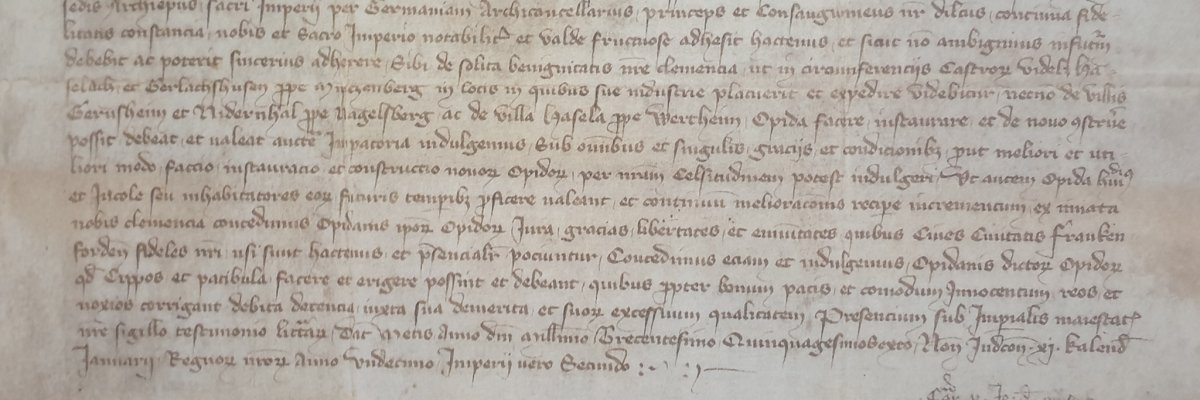 sedis Archiepus, sacri Imperii per Germaniam Archicancellarius, princeps et Consangwineus nr dilcus, continua fide-
litatis constancia, nobis et Sacro Imperio notabilitr et valde fructuose adhesit hactenus, et sicut nō ambigimus infutm
debebit ac poterit sincerius adherere, Sibi de solita benignitatis nre clemencia, ut in circumferenciis Castror videlt Ha-
selach, et Gerlachshusen ppe in locis in quibus sue industrie placuerit et expedire videbitur, necno de villis
Gernsheim et Nidernhal ppe Nagelsberg ac de villa Hasela ppe Wertheim, Opida facere, instaurare, et de novo 9strue
possit debeat, et valeat aucte Impatoria indulgemus, Sub omibus et singulis, graciis, et condicionibz, prout meliori et uti-
liori modo, faccio, instauracio, et constructio novor Opidor, per nram Celsitudinem potest indulgeri, Ut autem Opida hmoi
et Incole seu inhabitatores eor, futuris tempibz pficere valeant, et continuu melioracionis recipe incrementum, ex innata
nobis clemencia concedimus Opidanis ipor Opidor, Jura, gracias, libertates, et emunitates, quibus Cives Civitatis Franken-
forden fideles nri, usi sunt hactenus, et psencialr pociuntur, Concedimus eciam et indulgemus, Opidanis dictor Opidor
qd Cippos et patibula, facere et erigere possint et debeant, quibus ppter bonum pacis, et comodum Innocentum, reos et
noxios corrigant debita detencia, iuxta sua demerita, et suor excessuum qualitatem, Presencium sub Impialis maiestat
nre sigillo testimonio littar, Dat Metis Anno dni Millimo Trecentesimo Quinquagesimosexto, Non Indccon xi. kalend
Januarii, Regnor nror Anno undecimo, Imperii vero Secundo